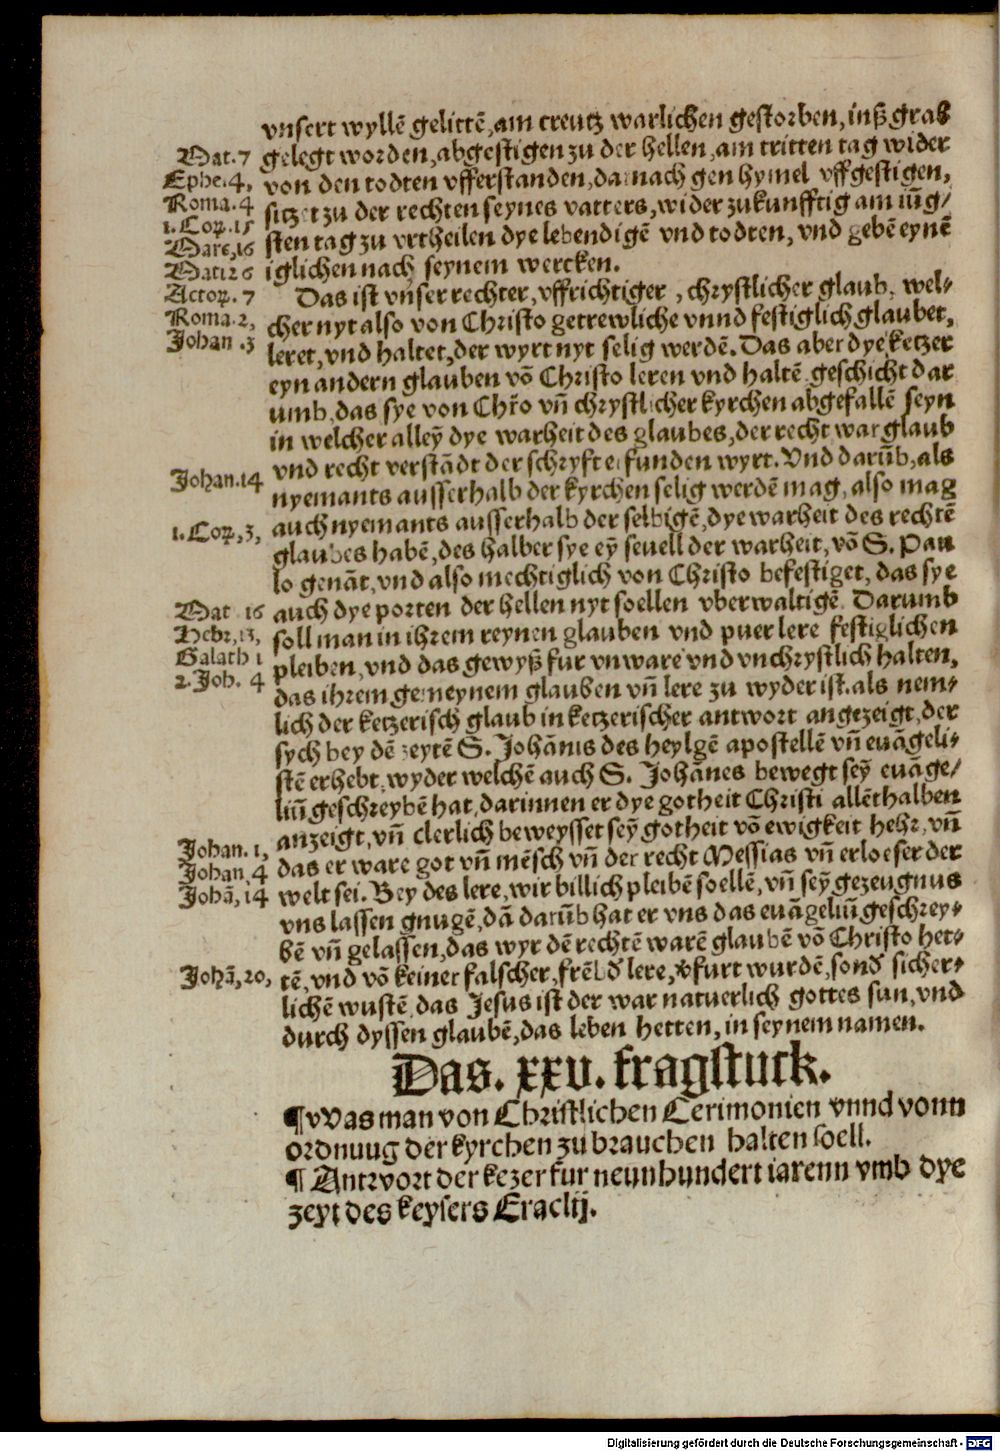 vnsert wyllē gelittē, am creutz warlichen gestorben, inß grab
Mat. 7 gelegt worden, abgestigen zu der hellen, am tritten tag wider
Ephe. 4, von den todten vfferstanden, darnach gen hymel vffgestigen,
Roma. 4 sitzet zu der rechten seynes vatters, wider zukunfftig am iūg/
1. Coꝝ. 15
Marc, 16 sten tag zu vrtheilen dye lebendigē vnd todten, vnd gebē eynē
Mat. 26 iglichen nach seynem wercken.
Actoꝝ. 7 Das ist vnser rechter, vffrichtiger, chrystlicher glaub, wel-
Roma. 2, cher nyt also von Christo getrewliche vnnd festiglich glaubet,
Johan .3 leret, vnd haltet, der wyrt nyt selig werdē. Das aber dye ketzer
eyn andern glauben vō Christo leren vnd haltē geschicht dar
umb, das sye von Chr̄o vn̄ chrystlicher kyrchen abgefallē seyn
in welcher alleȳ dye warheit des glaubes, der recht war glaub
vnd recht verstādt der schryft erfunden wyrt. Vnd darūb, als
Johan. 14 nyemants ausserhalb der kyrchen selig werdē mag, also mag
1. Coꝝ, 3, auch nyemants ausserhalb der selbigē, dye warheit des rechtē
glaubes habē, des halber sye eȳ seuell der warheit, vō S. Pau
lo genāt, vnd also mechtiglich von Christo befestiget, das sye
Mat 16 auch dye porten der hellen nyt soellen vberwaltigē. Darumb
Hebr, 13, soll man in ihrem reynen glauben vnd puer lere festiglichen
Galath 1 pleiben, vnd das gewyß fur vnware vnd vnchrystlich halten,
2. Joh. 4 das ihrem gemeynem glauben vn̄ lere zu wyder ist. als nem-
lich der ketzerisch glaub in ketzerischer antwort angezeigt, der
sych bey dē zeytē S. Johānis des heylgē apostellē vn̄ euāgeli-
stē erhebt, wyder welchē auch S. Johānes bewegt seȳ euāge/
liū geschreybē hat, darinnen er dye gotheit Christi allēthalben
Johan. 1, anzeigt, vn̄ clerlich beweysset seȳ gotheit vō ewigkeit hehr, vn̄
Johan, 4 das er ware got vn̄ mēsch vn̄ der recht Messias vn̄ erloeser der
Johā, 14 welt sei. Bey des lere, wir billich pleibē soellē, vn̄ seȳ gezeugnus
vns lassen gnugē, dā darūb hat er vns das euāgeliū geschrey-
bē vn̄ gelassen, das wyr dē rechtē warē glaubē vō Christo het-
Johā, 20, tē, vnd vō keiner falscher, frēbd̄ lere, v̄furt wurdē, sond̄ sicher-
lichē wustē das Jesus ist der war natuerlich gottes sun, vnd
durch dyssen glaubē, das leben hetten, in seynem namen.
Das. xxv. fragstuck.
¶ vVas man von Christlichen Cerimonien vnnd vonn
ordnuug der kyrchen zu brauchen halten soell.
¶ Antzvort der kezer fur neunhundert iarenn vmb dye
zeyt des keysers Eraclij.
Digitalisierung gefördert durch die Deutsche Forschungsgemeinschaft - DFG